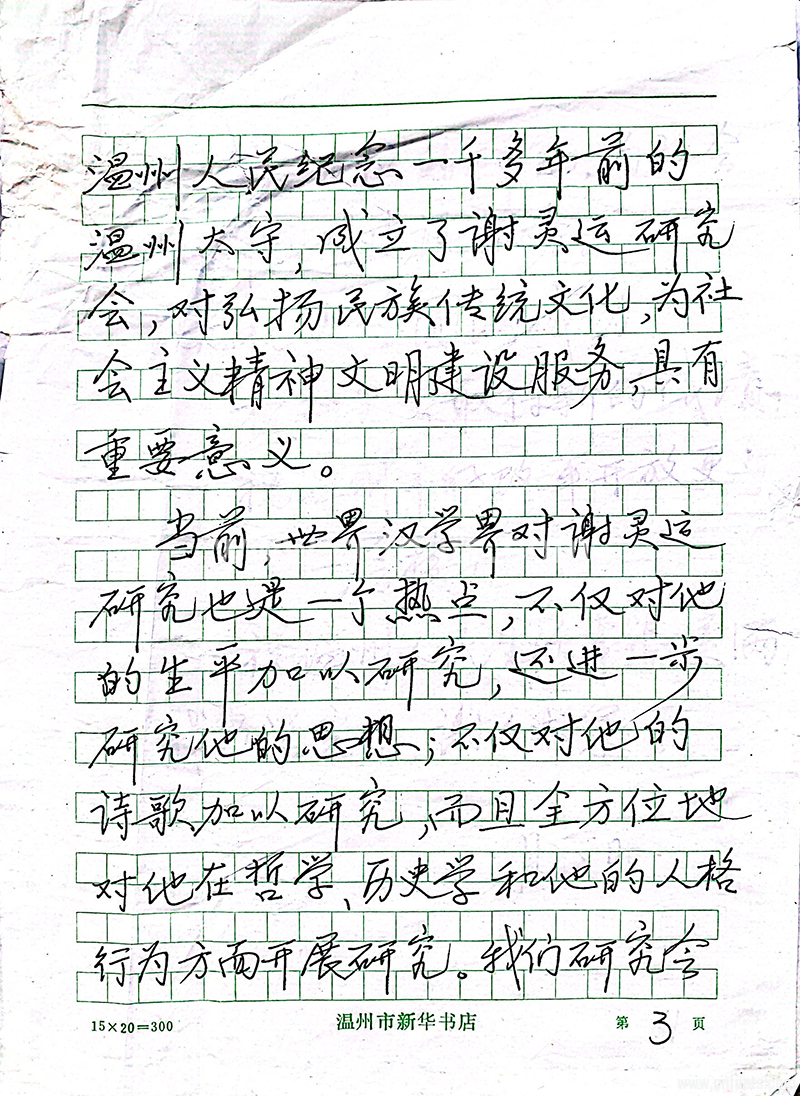 温州人民纪念一千多年前的
温州太守，成立了谢灵运研究
会，对弘扬民族传统文化，为社
会主义精神文明建设服务，具有
重要意义。
当前，世界汉学界对谢灵运
研究也是一个热点，不仅对他
的生平加以研究，还进一步
研究他的思想；不仅对他的
诗歌加以研究，而且全方位地
对他在哲学、历史学和他的人格
行为方面开展研究。我们研究会
15×20=300 温州市新华书店 第 3 页